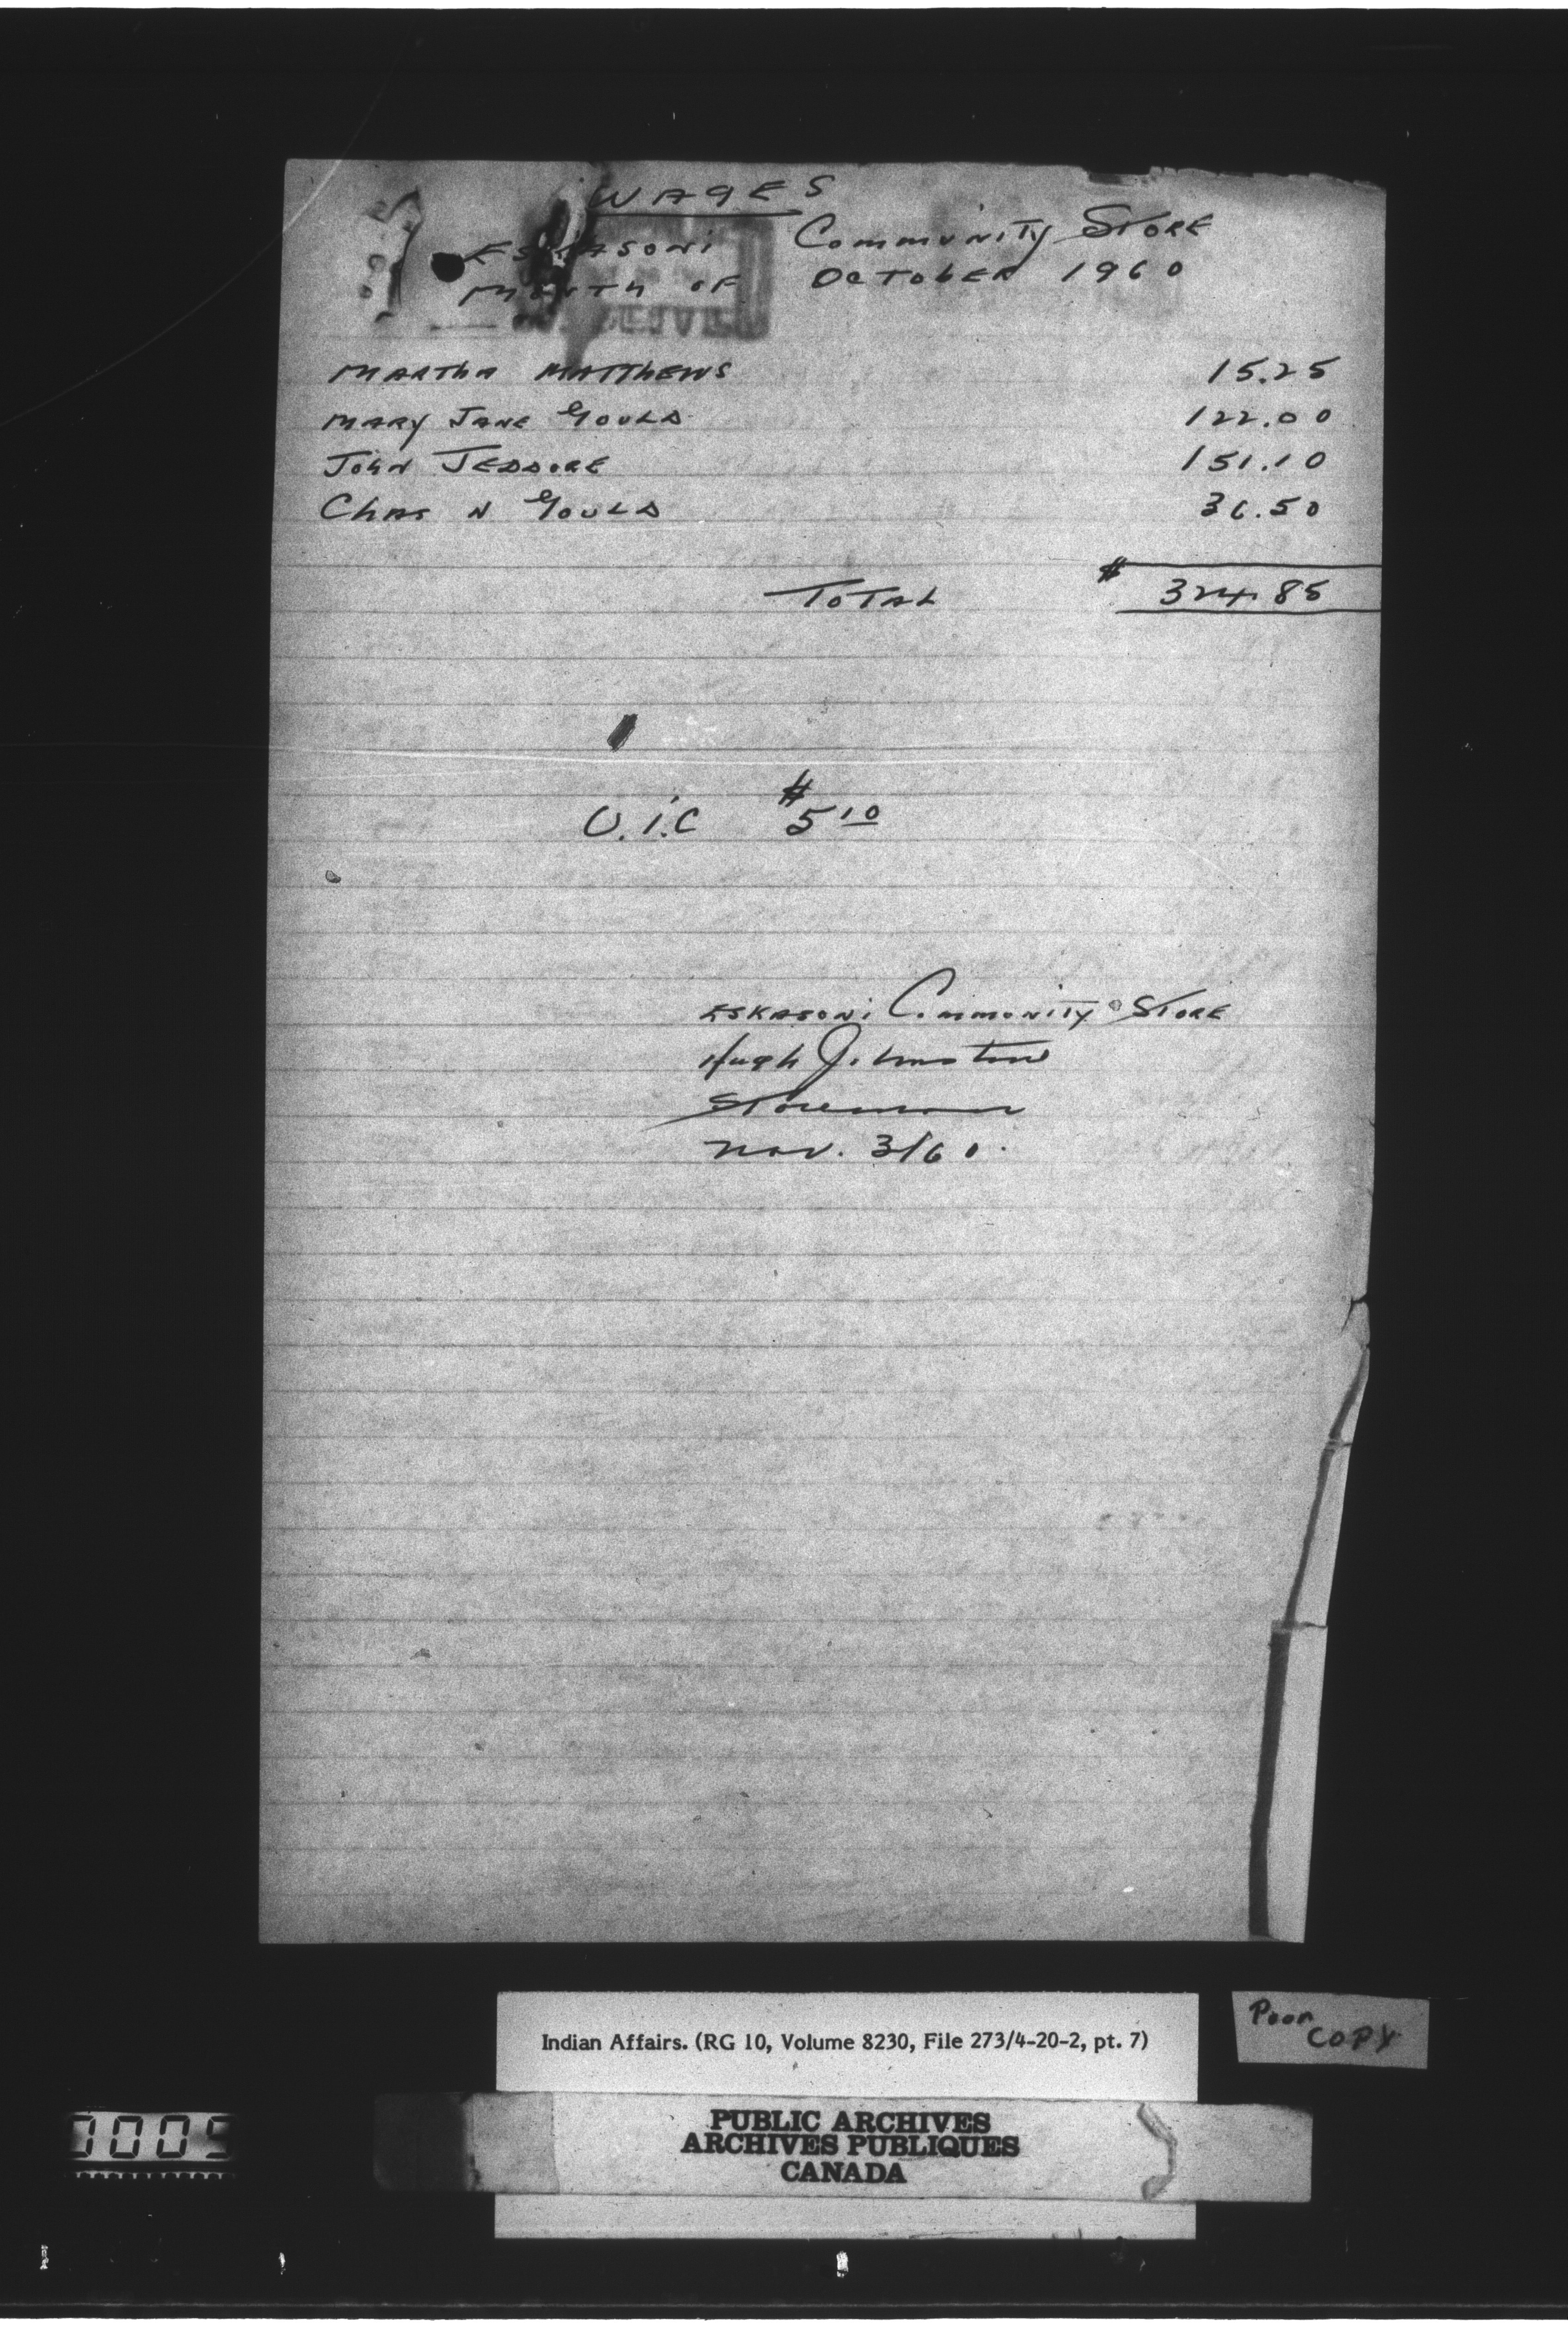 WAGES
ESKASONI Community STORE
MONTH OF OCTOBER 1960
MARTHA MATTHEWS 15.25
MARY JANE GOULD 122.00
JOHN JEDDORE 151.10
Chas N GOULD 36.50
TOTAL $ 324.85
U.I.C $5.10
ESKASONI Community STORE
Hugh Johnstone
Storeman
Nov. 3/60.
Indian Affairs. (RG 10, Volume 8230, File 273/4-20-2, pt. 7)
Poor
COPY
PUBLIC ARCHIVES
ARCHIVES PUBLIQUES
CANADA